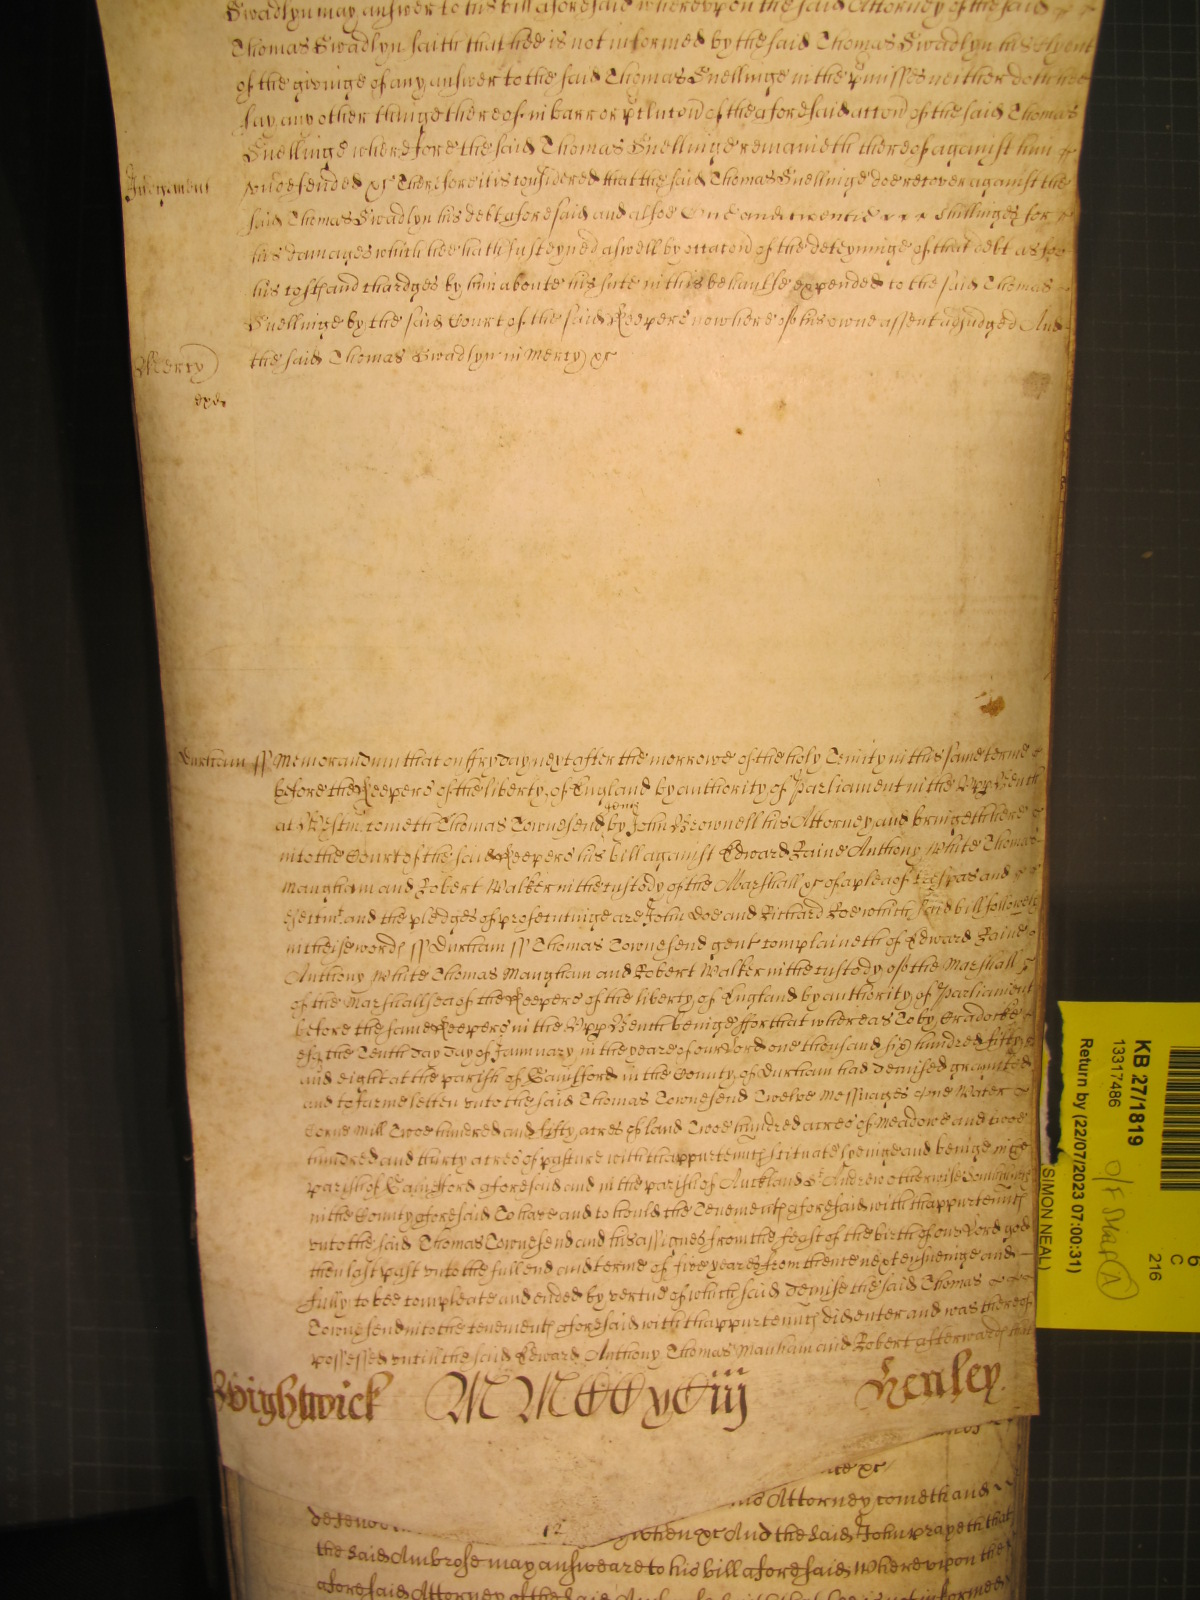 Swadlyn may answer to his bill aforesaid whereupon the said Attorney of the said
Thomas Swadlyn saith that hee is not informed by the said Thomas Swadlyn his Clyent
of the givinge of any answer to the said Thomas Snellinge in the pmisses neither doth hee
say any other thinge thereof in barr or pclusion of the aforesaid accion of the said Thomas
Snellinge wherefore the said Thomas Snellinge remaineth thereof against him
Judgement
undefended &c Therefore it is considered that the said Thomas Snellinge doe recover against the
said Thomas Swadlyn his debt aforesaid and alsoe One and twentie shillinges for
his damages which hee hath susteyned aswell by occacion of the deteyninge of that debt as for
his costs and chardges by him aboute his sute in this behaulfe expended to the said Thomas
Snellinge by the said Court of the said Keepers now here of his owne assent adjudged And
Mercy
the said Thomas Swadlyn in Mercy &c
Durham ss Memorandum that on ffryday next after the morrowe of the holy Trinity in this same terme
before the Keepers of the liberty of England by authority of Parliament in the Upp Bench
at Westm cometh Thomas Townesend gent by John Brownell his Attorney and bringeth here
into the Court of the said Keepers his bill against Edward Raine Anthony White Thomas
Maugham and Robert Walker in the custody of the Marshall &c of a plea of Trespas and
Ejectmt and the pledges of prosecutinge are John Doe and Richard Roe which said bill followeth
in theise words ss Durham ss Thomas Townesend gent complaineth of Edward Raine
Anthony White Thomas Maugham and Robert Walker in the custody of the Marshall
of the Marshallsea of the Keepers of the liberty of England by authority of Parliament
before the same Keepers in the Upp Bench beinge ffor that whereas Toby Cradocke
esq the Tenth day day of January in the yeare of our Lord one thousand six hundred fifty
and eight at the parish of Gainfford in the County of Durham had demised graunted
and to farme letten unto the said Thomas Townesend Twelve Messuages One Water
Corne Mill Twoe hundred and fifty acres of land Twoe hundred acres of Meadowe and twoe
hundred and thirty acres of pasture with thappurtenncs scituate lyeinge and beinge in the
parish of Gainfford aforesaid and in the parish of Auckland St Andrew otherwise
in the County aforesaid To have and to hould the Tenements aforesaid with thappurtenncs
unto the said Thomas Townesend and his assignes from the feast of the birth of our Lord god
then last past unto the full end and terme of five yeares from thence next ensueinge and
fully to bee compleate and ended by vertue of which said demise the said Thomas
Townesend into the tenements aforesaid with thappurtenncs did enter and was thereof
possessed untill the said Edward Anthony Thomas Mauham and Robert afterwards that
Wightwick MM Henley
&c
his Attorney cometh and
12
when &c And the said John prayeth that
the said Ambrose may answeare to his bill aforesaid Whereupon the
aforesaid Attorney of the said
KB 27/1819
13317486
Return by (22/07/2023 07:00:31)
SIMON NEAL)
O/F Staf A
6
C
216